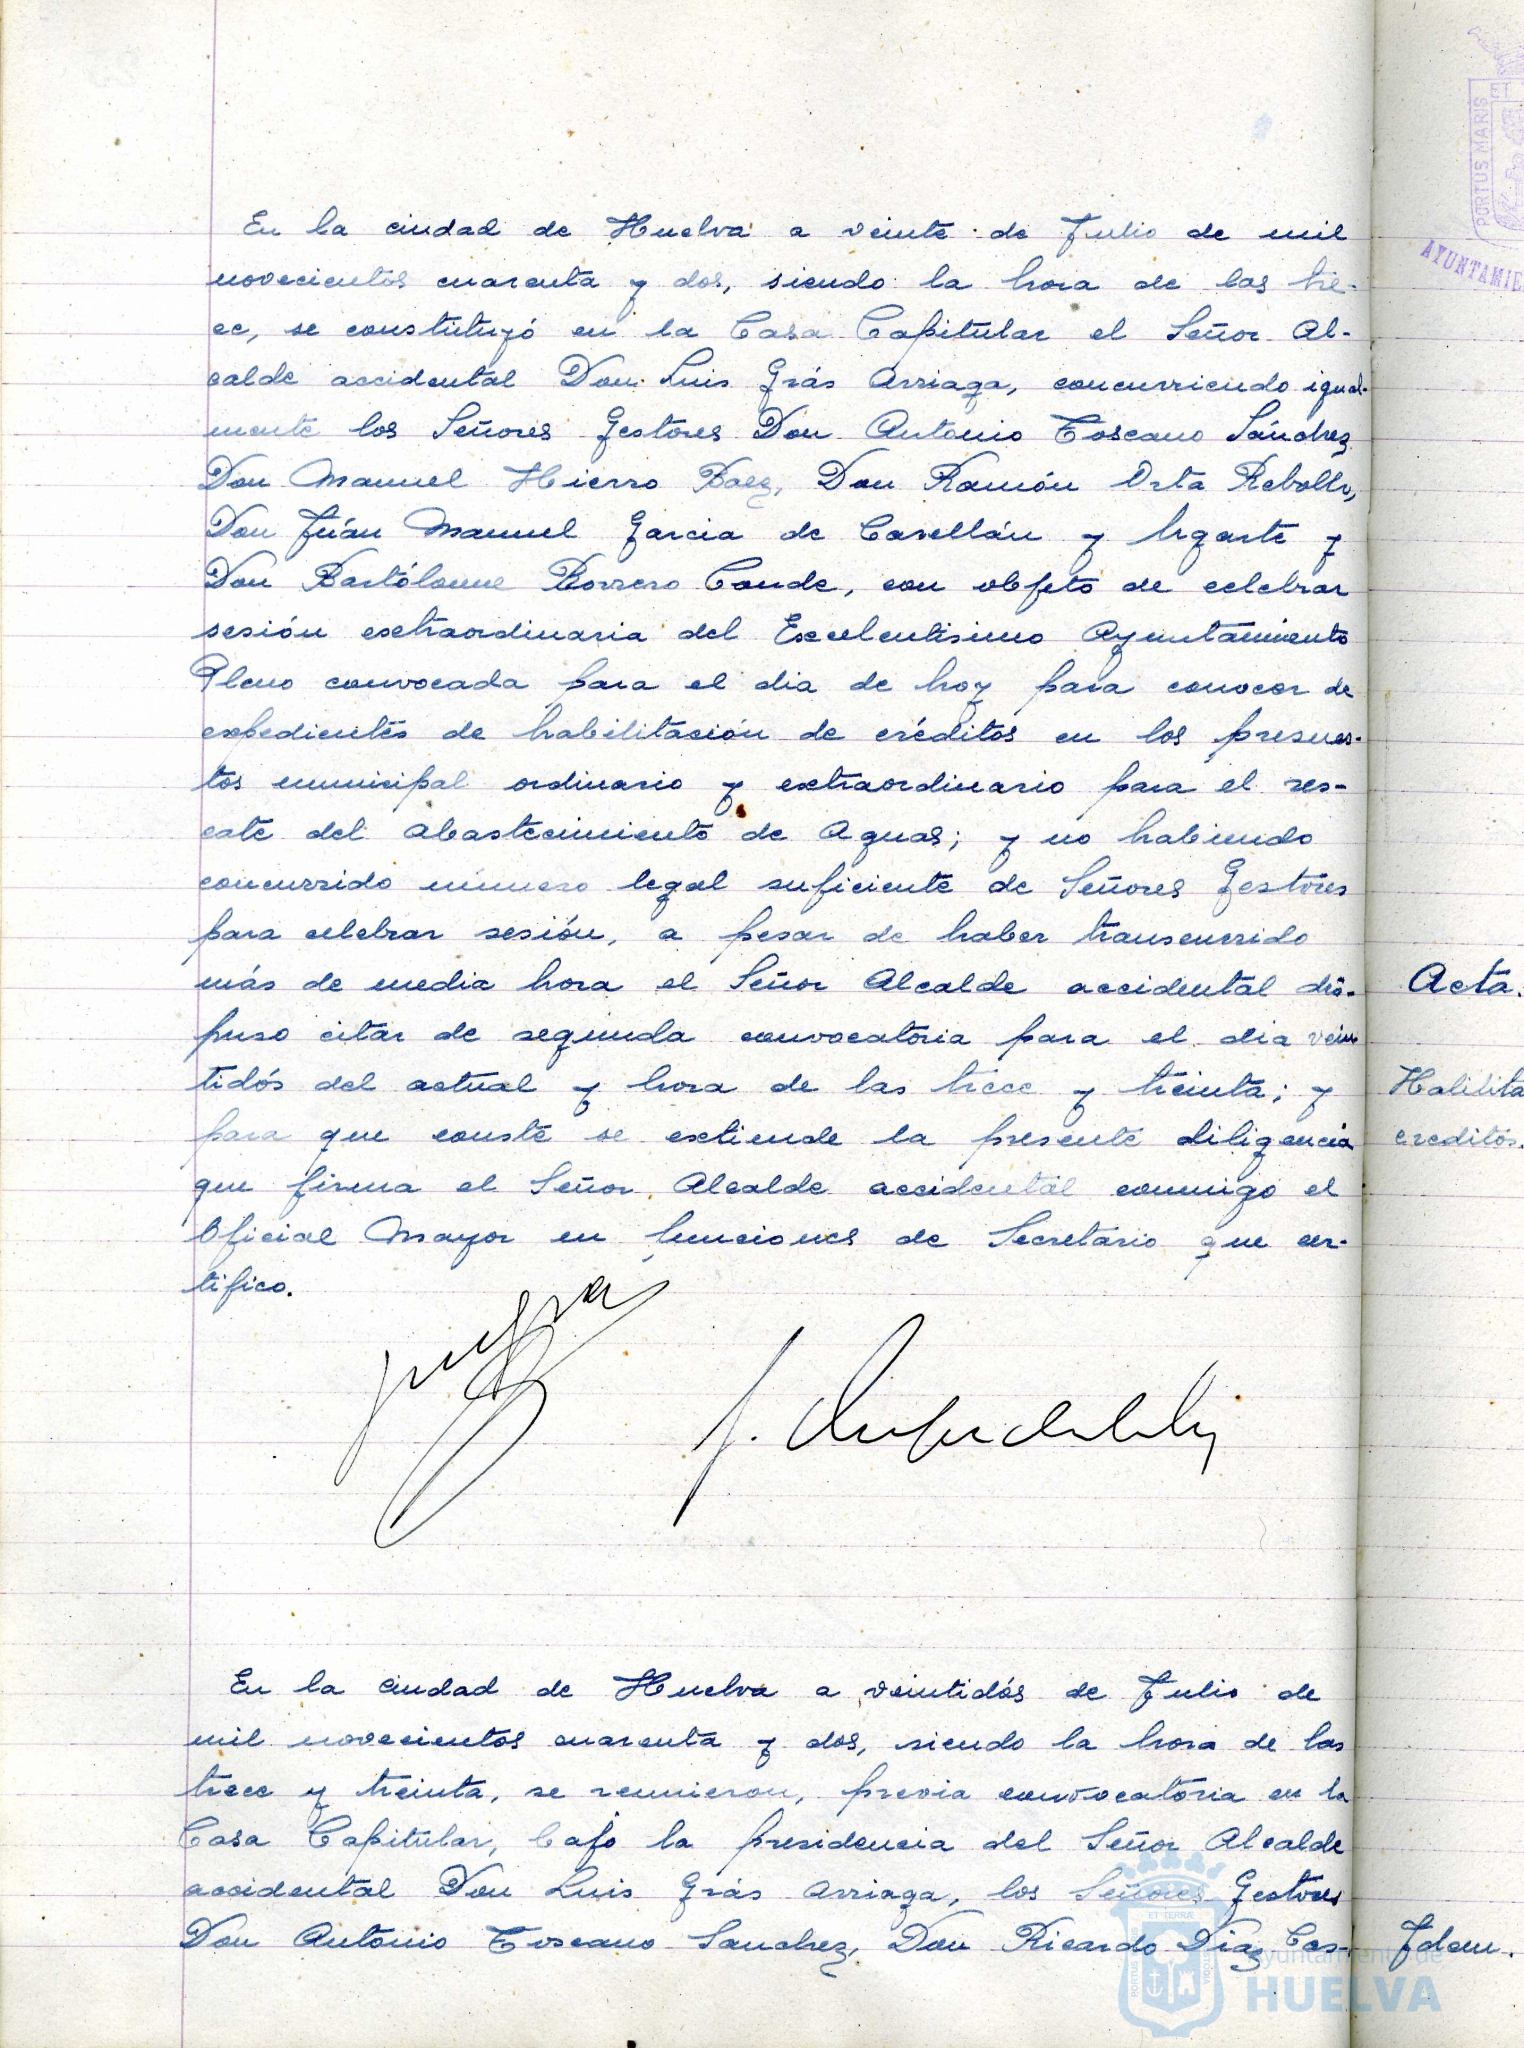 En la ciudad de Huelva a veinte de Julio de mil
novecientos cuarenta y dos, siendo la hora de las tre-
ce, se constituyó en la Casa Capitular el Señor Al-
calde accidental Don Luis Grás Arriaga, concurriendo igual-
mente los Señores Gestores Don Antonio Toscano Sánchez
Don Manuel Hierro Baez, Don Ramón Orta Rebollo,
Don Juán Manuel Garcia de Cavellán y Ugarte y
Don Bartólome Borrero Conde, con objeto de celebrar
sesión extraordinaria del Excelentisimo Ayuntamiento
Pleno convocada para el dia de hoy para conocer de
expedientes de habilitación de créditos en los presues-
tos municipal ordinario y extraordinario para el res-
cate del abastecimiento de Aguas; y no habiendo
concurrido número legal suficiente de Señores Gestores
para celebrar sesión, a pesar de haber transcurrido
más de media hora el Señor Alcalde accidental dis-
puso citar de segunda convocatoria para el dia vein
tidós del actual y hora de las trece y treinta; y
para que conste se extiende la presente diligencia
que firma el Señor Alcalde accidental conmigo el
Oficial Mayor en funciones de Secretario que cer-
tifico.
En la ciudad de Huelva a veintidós de Julio de
mil novecientos cuarenta y dos, siendo la hora de las
trece y treinta, se reunieron, previa convocatoria en la
Casa Capitular, bajo la presidencia del Señor Alcalde
accidental Don Luis Grás Arriaga, los Señores Gestores
Don Antonio Toscano Sanchez, Don Ricardo Diaz Cas-
PORTUS MARIS
ET
AYUNTAMIE
Acta.
Habilita
creditos.
Idem.
PORTUS MARIS
ET TERRÆ
CUSTODIA
Ayuntamiento de
HUELVA